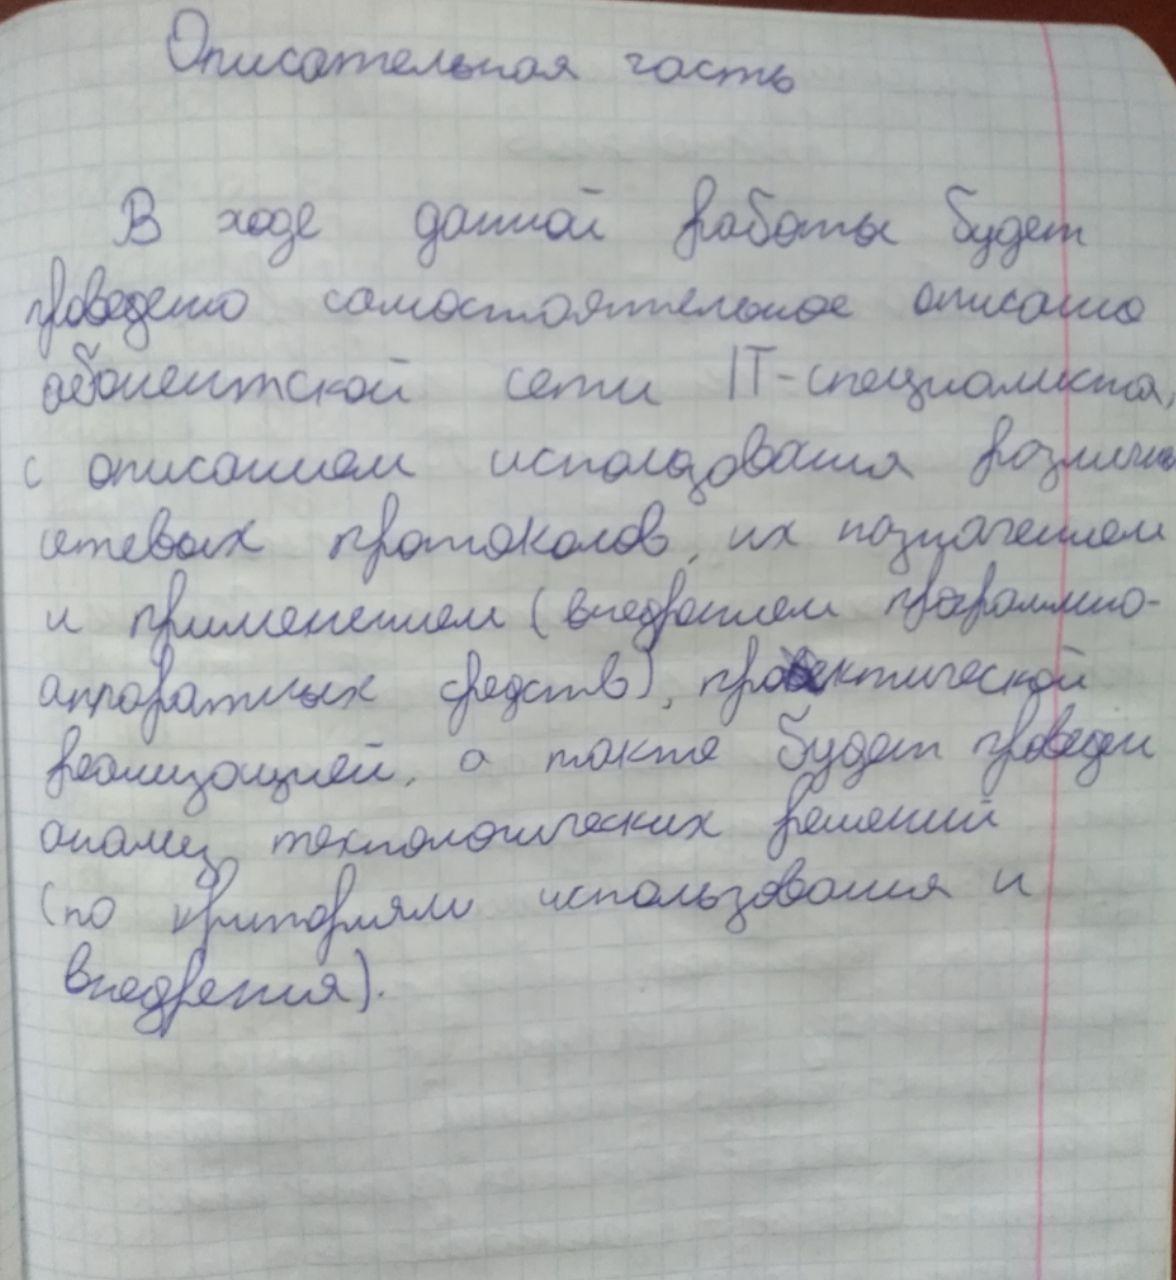 Описательная часть
В ходе данной работы будет
проведено самостоятельное описано
абонентской сети IT-специалиста,
с описанием использования
сетевых протоколов, их назначением
и применением (внедрением программно-
аппаратных средств), практической
реализацией, а также будет проведен
анализ технологических решений
(по криториям использования и
внедрения).